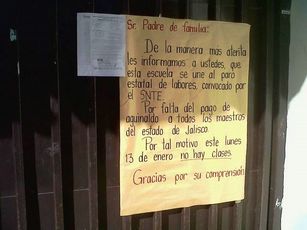 Sr. Padre de familia:
De la manera mas atenta
les informamos a ustedes, que
esta escuela se une al paro
estatal de labores, convocado por
el SNTE.
Por falta del pago de
aguinaldo a todos los maestros
del estado de Jalisco.
Por tal motivo este lunes
13 de enero no hay clases.
Gracias por su comprensión